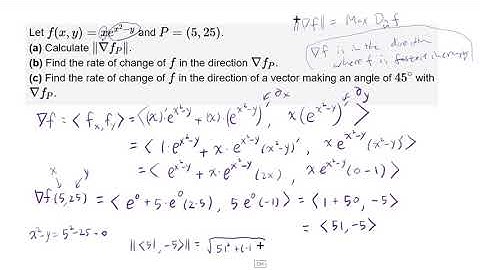 Let f(x, y) = xe^{x²−y} and P = (5, 25).
(a) Calculate ‖∇f_P‖.
(b) Find the rate of change of f in the direction ∇f_P.
(c) Find the rate of change of f in the direction of a vector making an angle of 45° with
∇f_P.
‖∇f‖ = Max D_u f
∇f is in the direction
where f is fastest increasing
∂x ∂y
∇f = <f_x, f_y> = <(x)' e^{x²-y} + (x)·(e^{x²-y})', x(e^{x²-y})'>
= <1·e^{x²-y} + x·e^{x²-y}(x²-y)', x e^{x²-y}(x²-y)'>
= <e^{x²-y} + x·e^{x²-y}(2x), x e^{x²-y}(0-1)>
x y
∇f(5,25) = <e⁰ + 5·e⁰(2·5), 5e⁰(-1)> = <1+50, -5>
= <51, -5>
x²-y = 5²-25 = 0
‖<51, -5>‖ = √51² + (-1 +